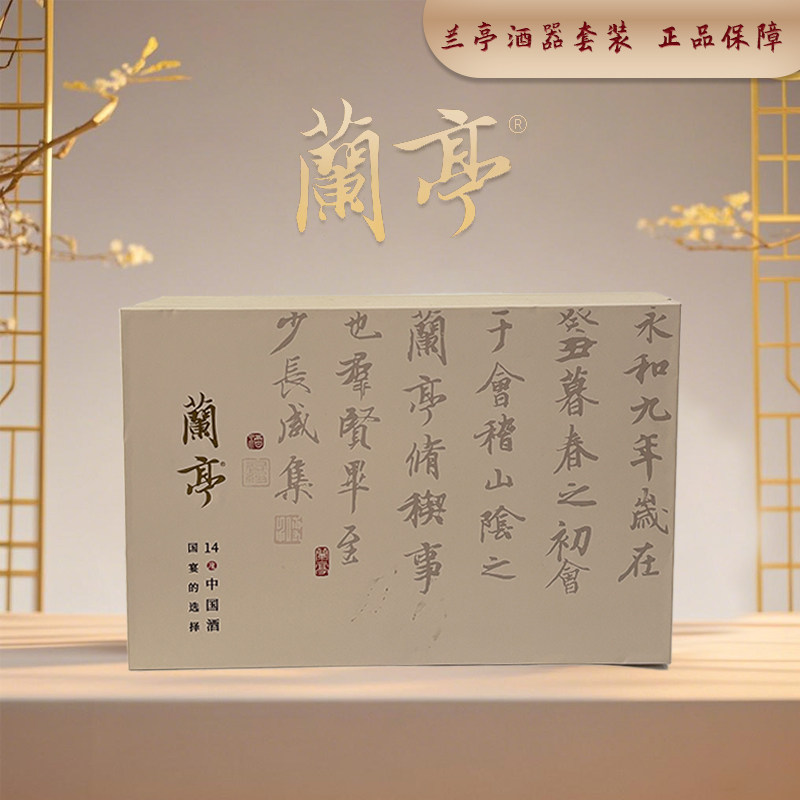 兰亭酒器套装 正品保障
蘭亭®
永和九年歲在
癸丑暮春之初會
于會稽山陰之
蘭亭脩稧事
也羣賢畢至
少長咸集
蘭亭®
14度中国酒
国宴的选择